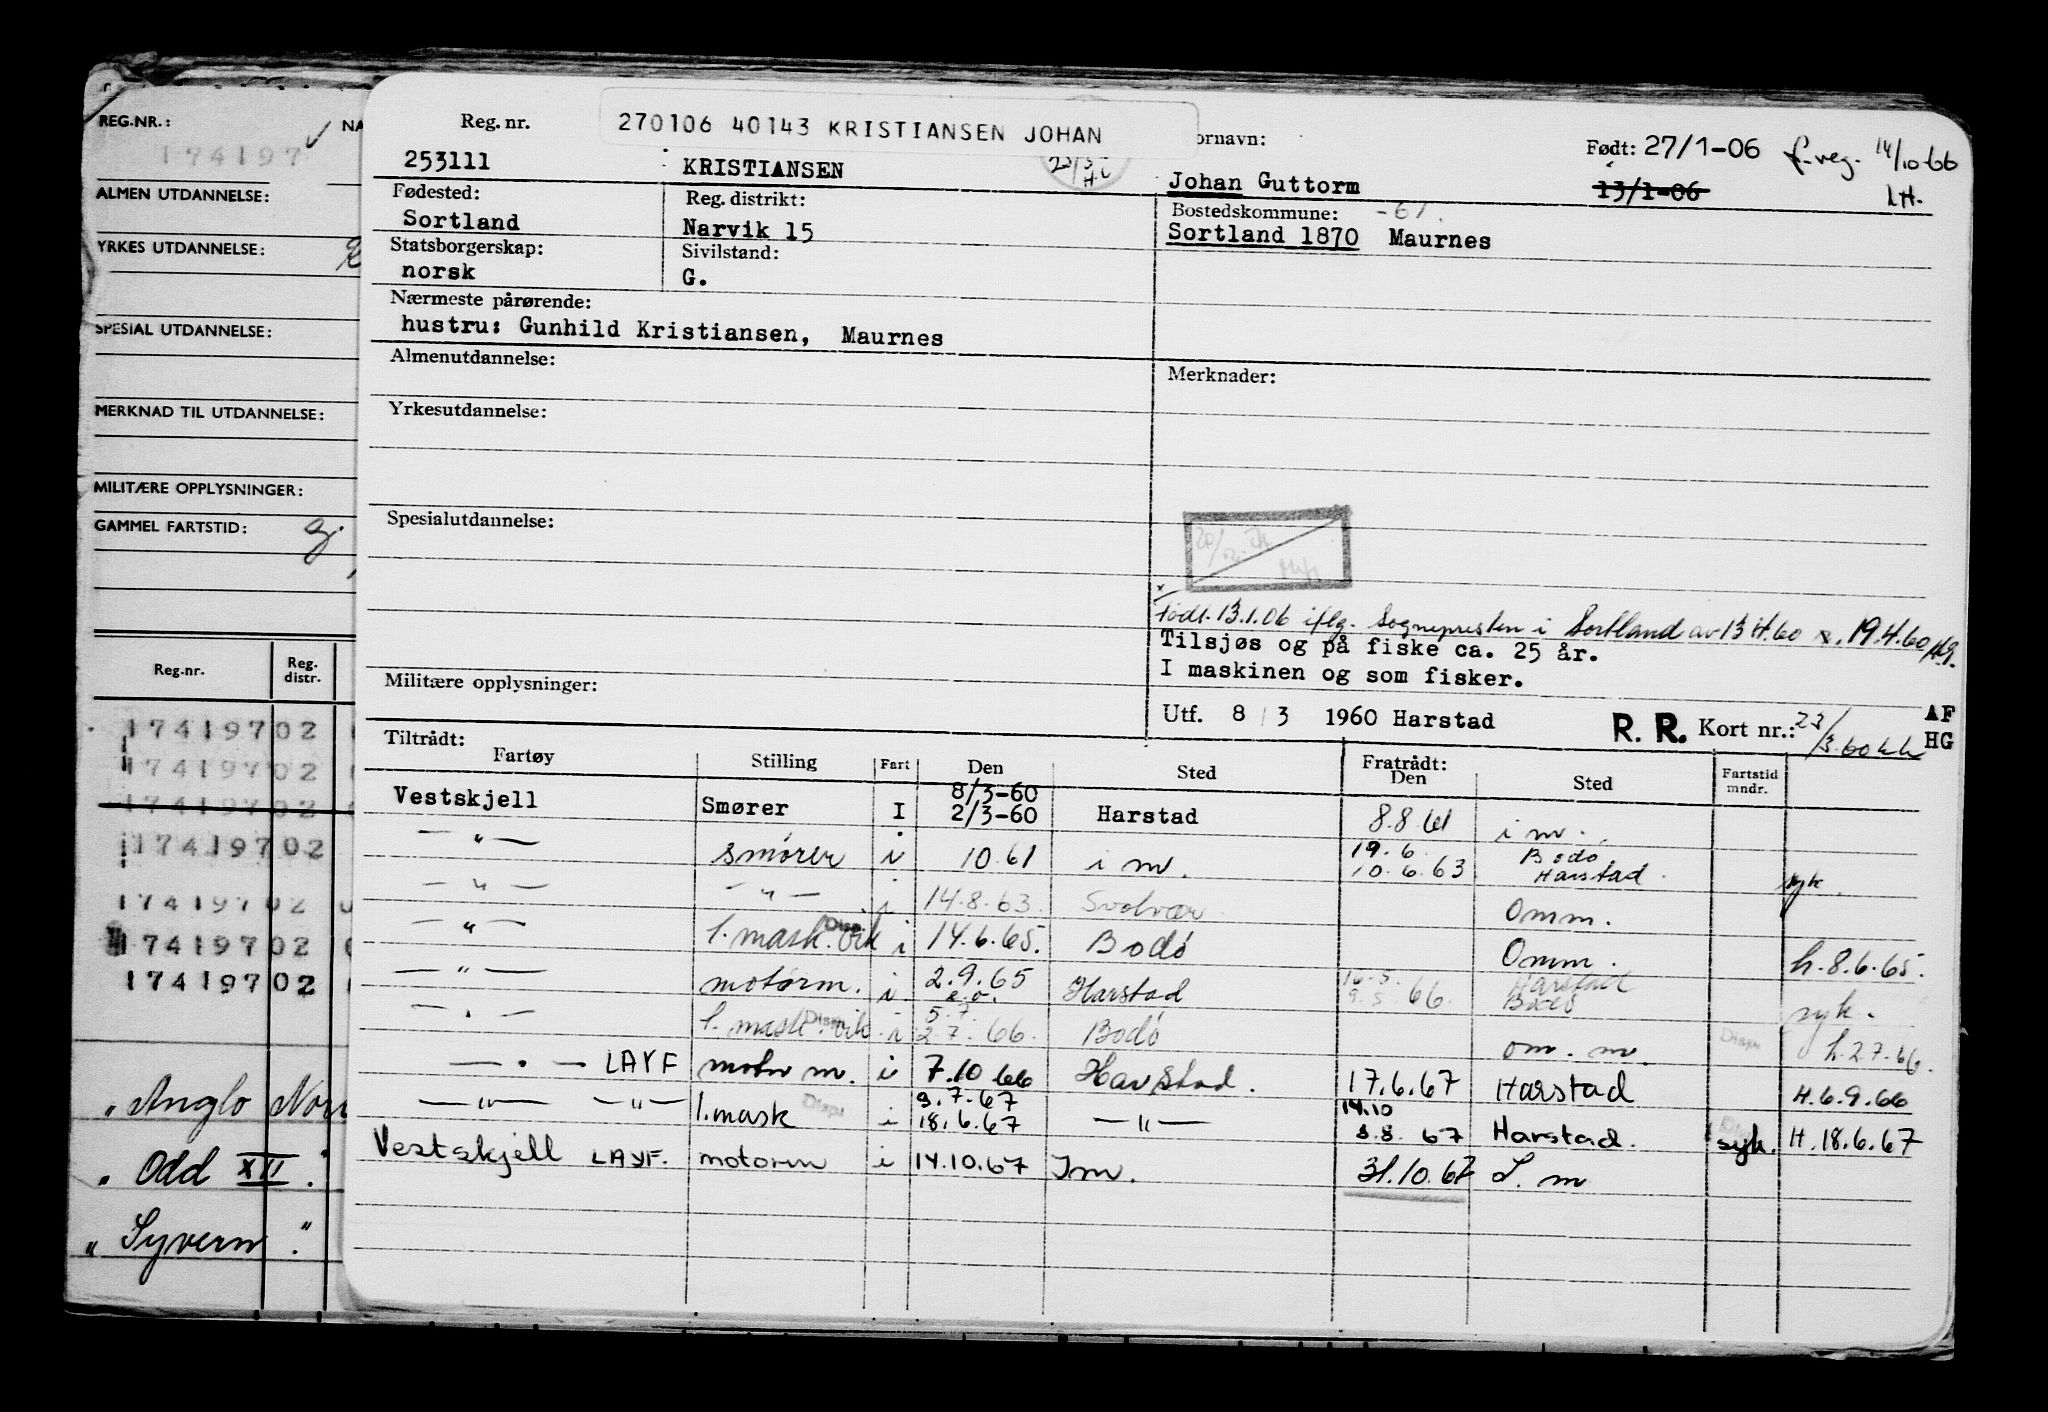 REG.NR.:
174197
NA
ALMEN UTDANNELSE:
YRKES UTDANNELSE:
SPESIAL UTDANNELSE:
MERKNAD TIL UTDANNELSE:
MILITÆRE OPPLYSNINGER:
GAMMEL FARTSTID:
Reg.nr. Reg. distr.
17419702
17419702
17419702
17419702
17419702
17419702
17419702
" Anglo Nor
" Odd XII "
" Syvern "
270106 40143 KRISTIANSEN JOHAN
Reg. nr. ornavn: Født: 27/1-06 f.reg. 14/10-66
253111 KRISTIANSEN Johan Guttorm 13/1-06 LH.
Fødested: Reg. distrikt: Bostedskommune: -61.
Sortland Narvik 15 Sortland 1870 Maurnes
Statsborgerskap: Sivilstand:
norsk G.
Nærmeste pårørende:
hustru: Gunhild Kristiansen, Maurnes
Almenutdannelse: Merknader:
Yrkesutdannelse:
Spesialutdannelse:
Født 13.1.06 iflg. Sognepresten i Sortland av 13.4.60 19.4.60
Tilsjøs og på fiske ca. 25 år.
I maskinen og som fisker.
Militære opplysninger:
Utf. 8/3 1960 Harstad R. R. Kort nr.: 23/3.60 AF HG
Tiltrådt: Fratrådt:
Fartøy Stilling Fart Den Sted Den Sted Fartstid mndr.
Vestskjell Smører I 8/3-60 2/3-60 Harstad 8.8.61 i m.
— " — smører i 10.61 i m. 19.6 10.6.63 Bodø Harstad syk.
— " — — " — i 14.8.63. Svolvær Omm.
— " — 1. mask. Disp. vik i 14.6.65. Bodø Omm. h.8.6.65.
— " — motorm. i 2.9.65 Harstad 16.5. 9.5.66 Harstad Bodø syk.
— " — 1. mask. Disp. vik i 5.7. 2.7.66. Bodø om. m. Disp. h.2.7.66.
— " — LAYF motor m. i 7.10.66 Harstad. 17.6.67 Harstad H.6.9.66
— " — — " — 1.mask Disp. i 9.7.67 18.6.67 — " — 14.10 8.8.67 Harstad. syk. H.18.6.67
Vestskjell LAYF. motorm i 14.10.67 Im. 31.10.67 I. m